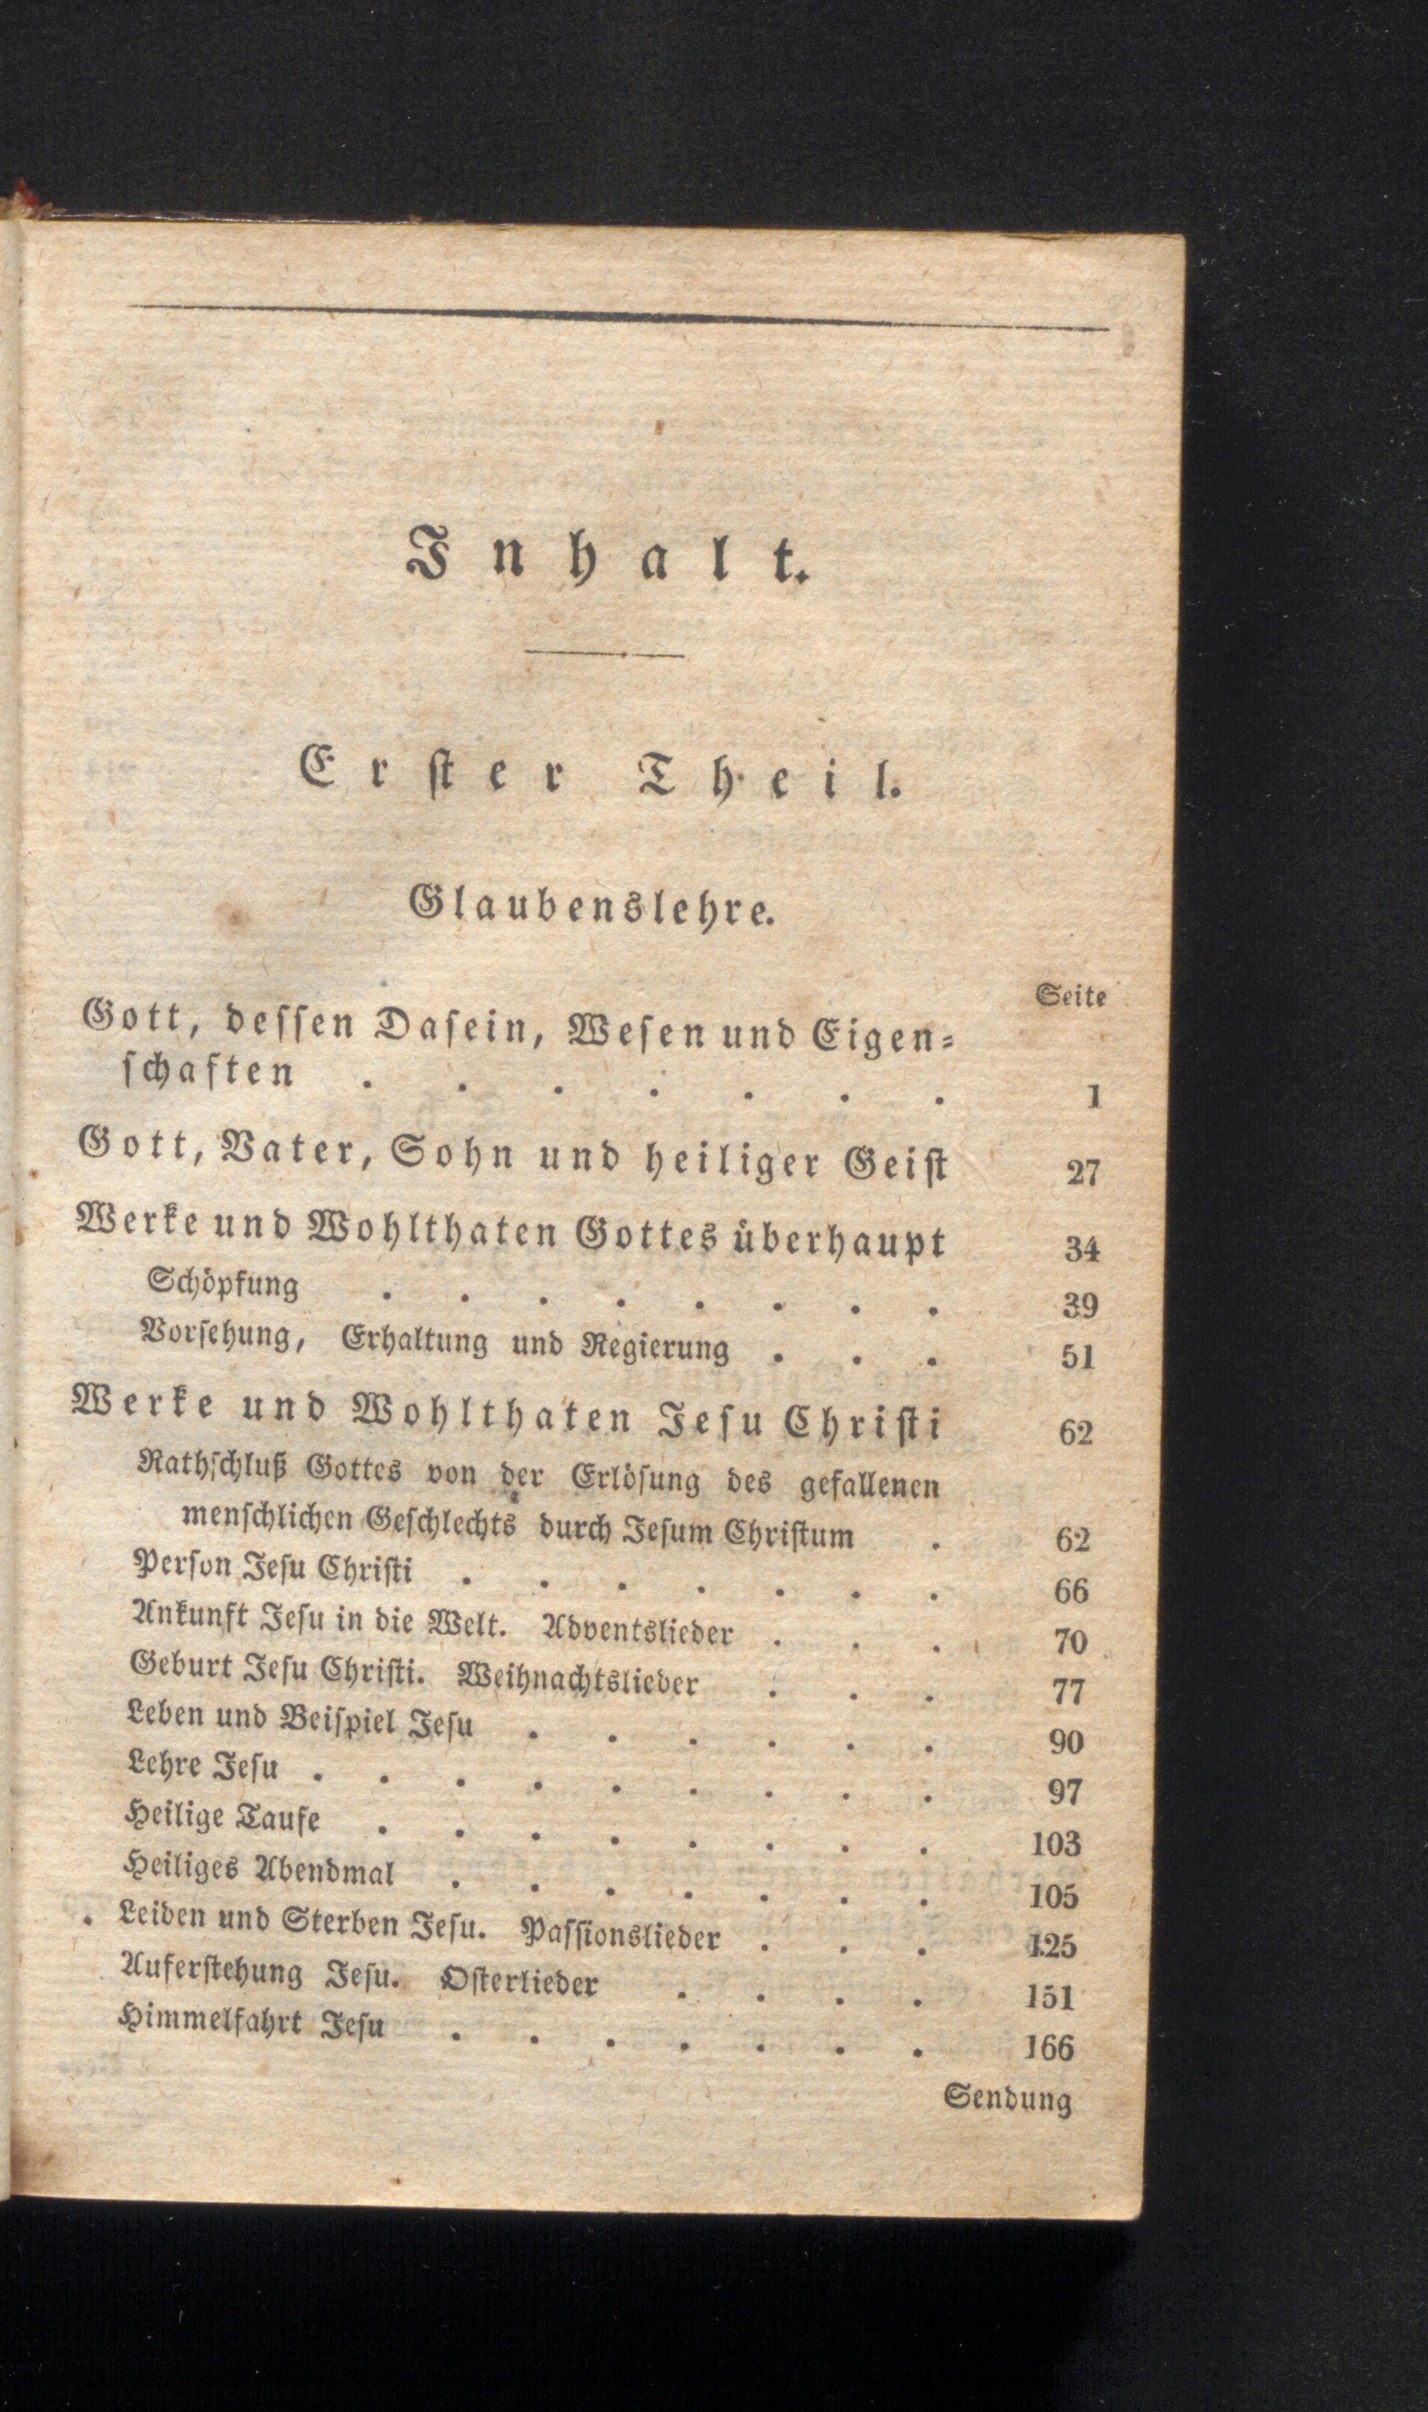 Inhalt.
Erster Theil.
Glaubenslehre.
Seite
Gott, deſſen Daſein, Weſen und Eigen⸗
ſchaften . . . . . . . 1
Gott, Vater, Sohn und heiliger Geiſt 27
Werke und Wohlthaten Gottes überhaupt 34
Schöpfung . . . . . . . . 39
Vorſehung, Erhaltung und Regierung . . . 51
Werke und Wohlthaten Jeſu Chriſti 62
Rathſchluß Gottes von der Erlöſung des gefallenen
menſchlichen Geſchlechts durch Jeſum Chriſtum . 62
Perſon Jeſu Chriſti . . . . . . . 66
Ankunft Jeſu in die Welt. Adventslieder . . . 70
Geburt Jeſu Chriſti. Weihnachtslieder . . . 77
Leben und Beiſpiel Jeſu . . . . . . 90
Lehre Jeſu . . . . . . . . . 97
Heilige Taufe . . . . . . . . 103
Heiliges Abendmal . . . . . . . 105
Leiden und Sterben Jeſu. Paſſionslieder . . . 125
Auferſtehung Jeſu. Oſterlieder . . . . 151
Himmelfahrt Jeſu . . . . . . . 166
Sendung